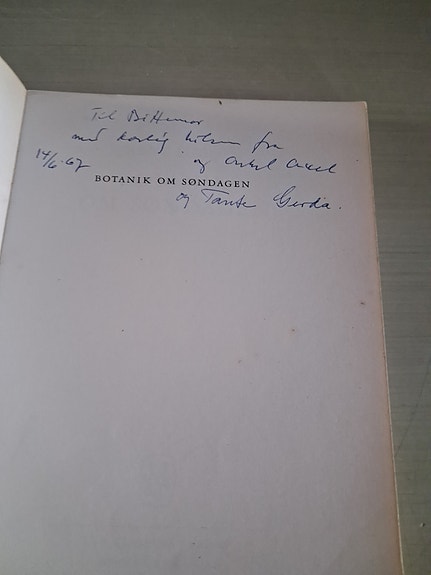 Til Bittemor
med kærlig hilsen fra
14/6-67 og Onkel Axel
BOTANIK OM SØNDAGEN
og Tante Gerda.